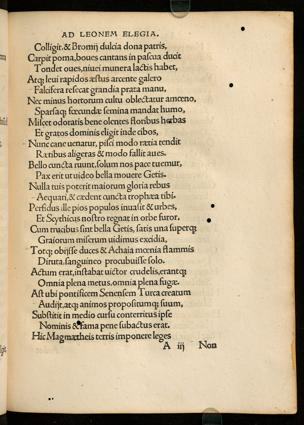 AD LEONEM ELEGIA.
Colligit. & Bromij dulcia dona patris,
Carpit poma, boues cantans in pascua ducit
Tondet oues, niuei munera lactis habet,
Atq; leui rapidos æstus arcente galero
Falcifera resecat grandia prata manu,
Nec minus hortorum cultu oblectatur amœno,
Sparsaq; fœcundæ semina mandat humo,
Miscet odoratis bene olentes floribus herbas
Et gratos dominis eligit inde cibos,
Nunc cane uenatur, pisci modo rætia tendit
Rætibus aligeras & modo fallit aues.
Bello cuncta ruunt. solum nos pace tuemur,
Pax erit ut uideo bella mouere Getis.
Nulla tuis poterit maiorum gloria rebus
Aequari, & cædent cuncta trophæa tibi.
Perfidus ille pios populos inuasit & urbes,
Et Scythicus nostro regnat in orbe furor.
Cum trucibus sint bella Getis, satis una superq;
Graiorum miserum uidimus exidia,
Totq; obijsse duces & Achaia mœnia flammis
Diruta. sanguineo procubuisse solo.
Actum erat, instabat uictor crudelis, erantq;
Omnia plena metus. omnia plena fugæ.
Ast ubi pontificem Senensem Turca creatum
Audijt. atq; animos propositumq; suum,
Substitit in medio cursu conterritus ipse
Nominis & fama pene subactus erat.
Hic Magmætheis terris imponere leges
A iij Non